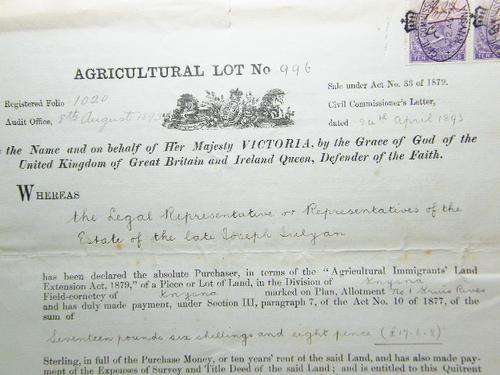 AGRICULTURAL LOT No 996
Sale under Act No. 53 of 1879.
Registered Folio 1020
Civil Commissioner's Letter,
Audit Office, 5th August 1893
dated 24th April 1893
the Name and on behalf of Her Majesty VICTORIA, by the Grace of God of the
United Kingdom of Great Britain and Ireland Queen, Defender of the Faith.
WHEREAS
the Legal Representative or Representatives of the
Estate of the late Joseph
has been declared the absolute Purchaser, in terms of the "Agricultural Immigrants' Land
Extension Act, 1879," of a Piece or Lot of Land, in the Division of Knysna
Field-cornetcy of Knysna marked on Plan, Allotment No 1 River
and has duly made payment, under Section III, paragraph 7, of the Act No. 10 of 1877, of the
sum of
Seventeen pounds six shillings and eight pence (£17.6.8)
Sterling, in full of the Purchase Money, or ten years' rent of the said Land, and has also made pay-
ment of the Expenses of Survey and Title Deed of the said Land; and is entitled to this Quitrent